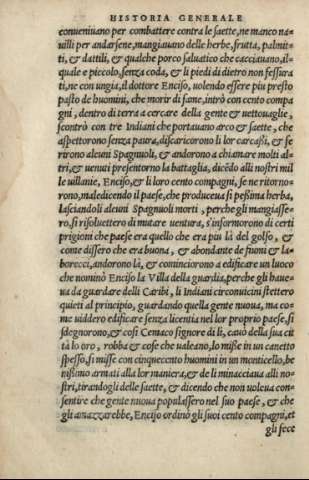 HISTORIA GENERALE
conueniuano per combattere contra le saette, ne manco na-
uilli per andarsene, mangiauano delle herbe, frutta, palmi-
ti, & dattili, & qualche porco saluatico che cacciauano, il-
quale e piccolo, senza coda, & li piedi di dietro non fessura
ti, ne con ungia, il dottore Enciso, uolendo essere piu presto
pasto de huomini, che morir di fame, intrò con cento compa
gni, dentro di terra a cercare della gente & uettouaglie,
scontrò con tre Indiani che portauano arco & saette, che
aspettorono senza paura, discaricorono li lor carcassi, & fe
rirono alcuni Spagnuoli, & andorono a chiamare molti al-
tri, & uenuti presentorno la battaglia, dicēdo alli nostri mil
le uillanie, Enciso, & li loro cento compagni, se ne ritorno-
rono, maledicendo il paese, che produceua sì pessima herba,
lasciandoli alcuni Spagnuoli morti, perche gli mangiasse-
ro, si risoluettero di mutare uentura, s'informorono di certi
prigioni che paese era quello che era piu là del golfo, &
come dissero che era buona, & abondante de fiumi & la-
borecci, andorono là, & conminciorono a edificare un luoco
che nominò Enciso la Villa della guardia, perche gli haue-
ua da guardare delli Caribi, li Indiani circonuicini stettero
quieti al principio, guardando quella gente nuoua, ma co-
me uiddero edificare senza licentia nel lor proprio paese, si
sdegnorono, & così Cemaco signore di lì, cauò della sua cit
tà lo oro, robba & cose che ualeano, lo misse in un canetto
spesso, si misse con cinquecento huomini in un monticello, be
nissimo armati alla lor maniera, & de lì minacciaua alli no-
stri, tirandogli delle saette, & dicendo che non uoleua con-
sentire che gente nuoua populassero nel suo paese, & che
gli amazzarebbe, Enciso ordinò gli suoi cento compagni, et
gli fece